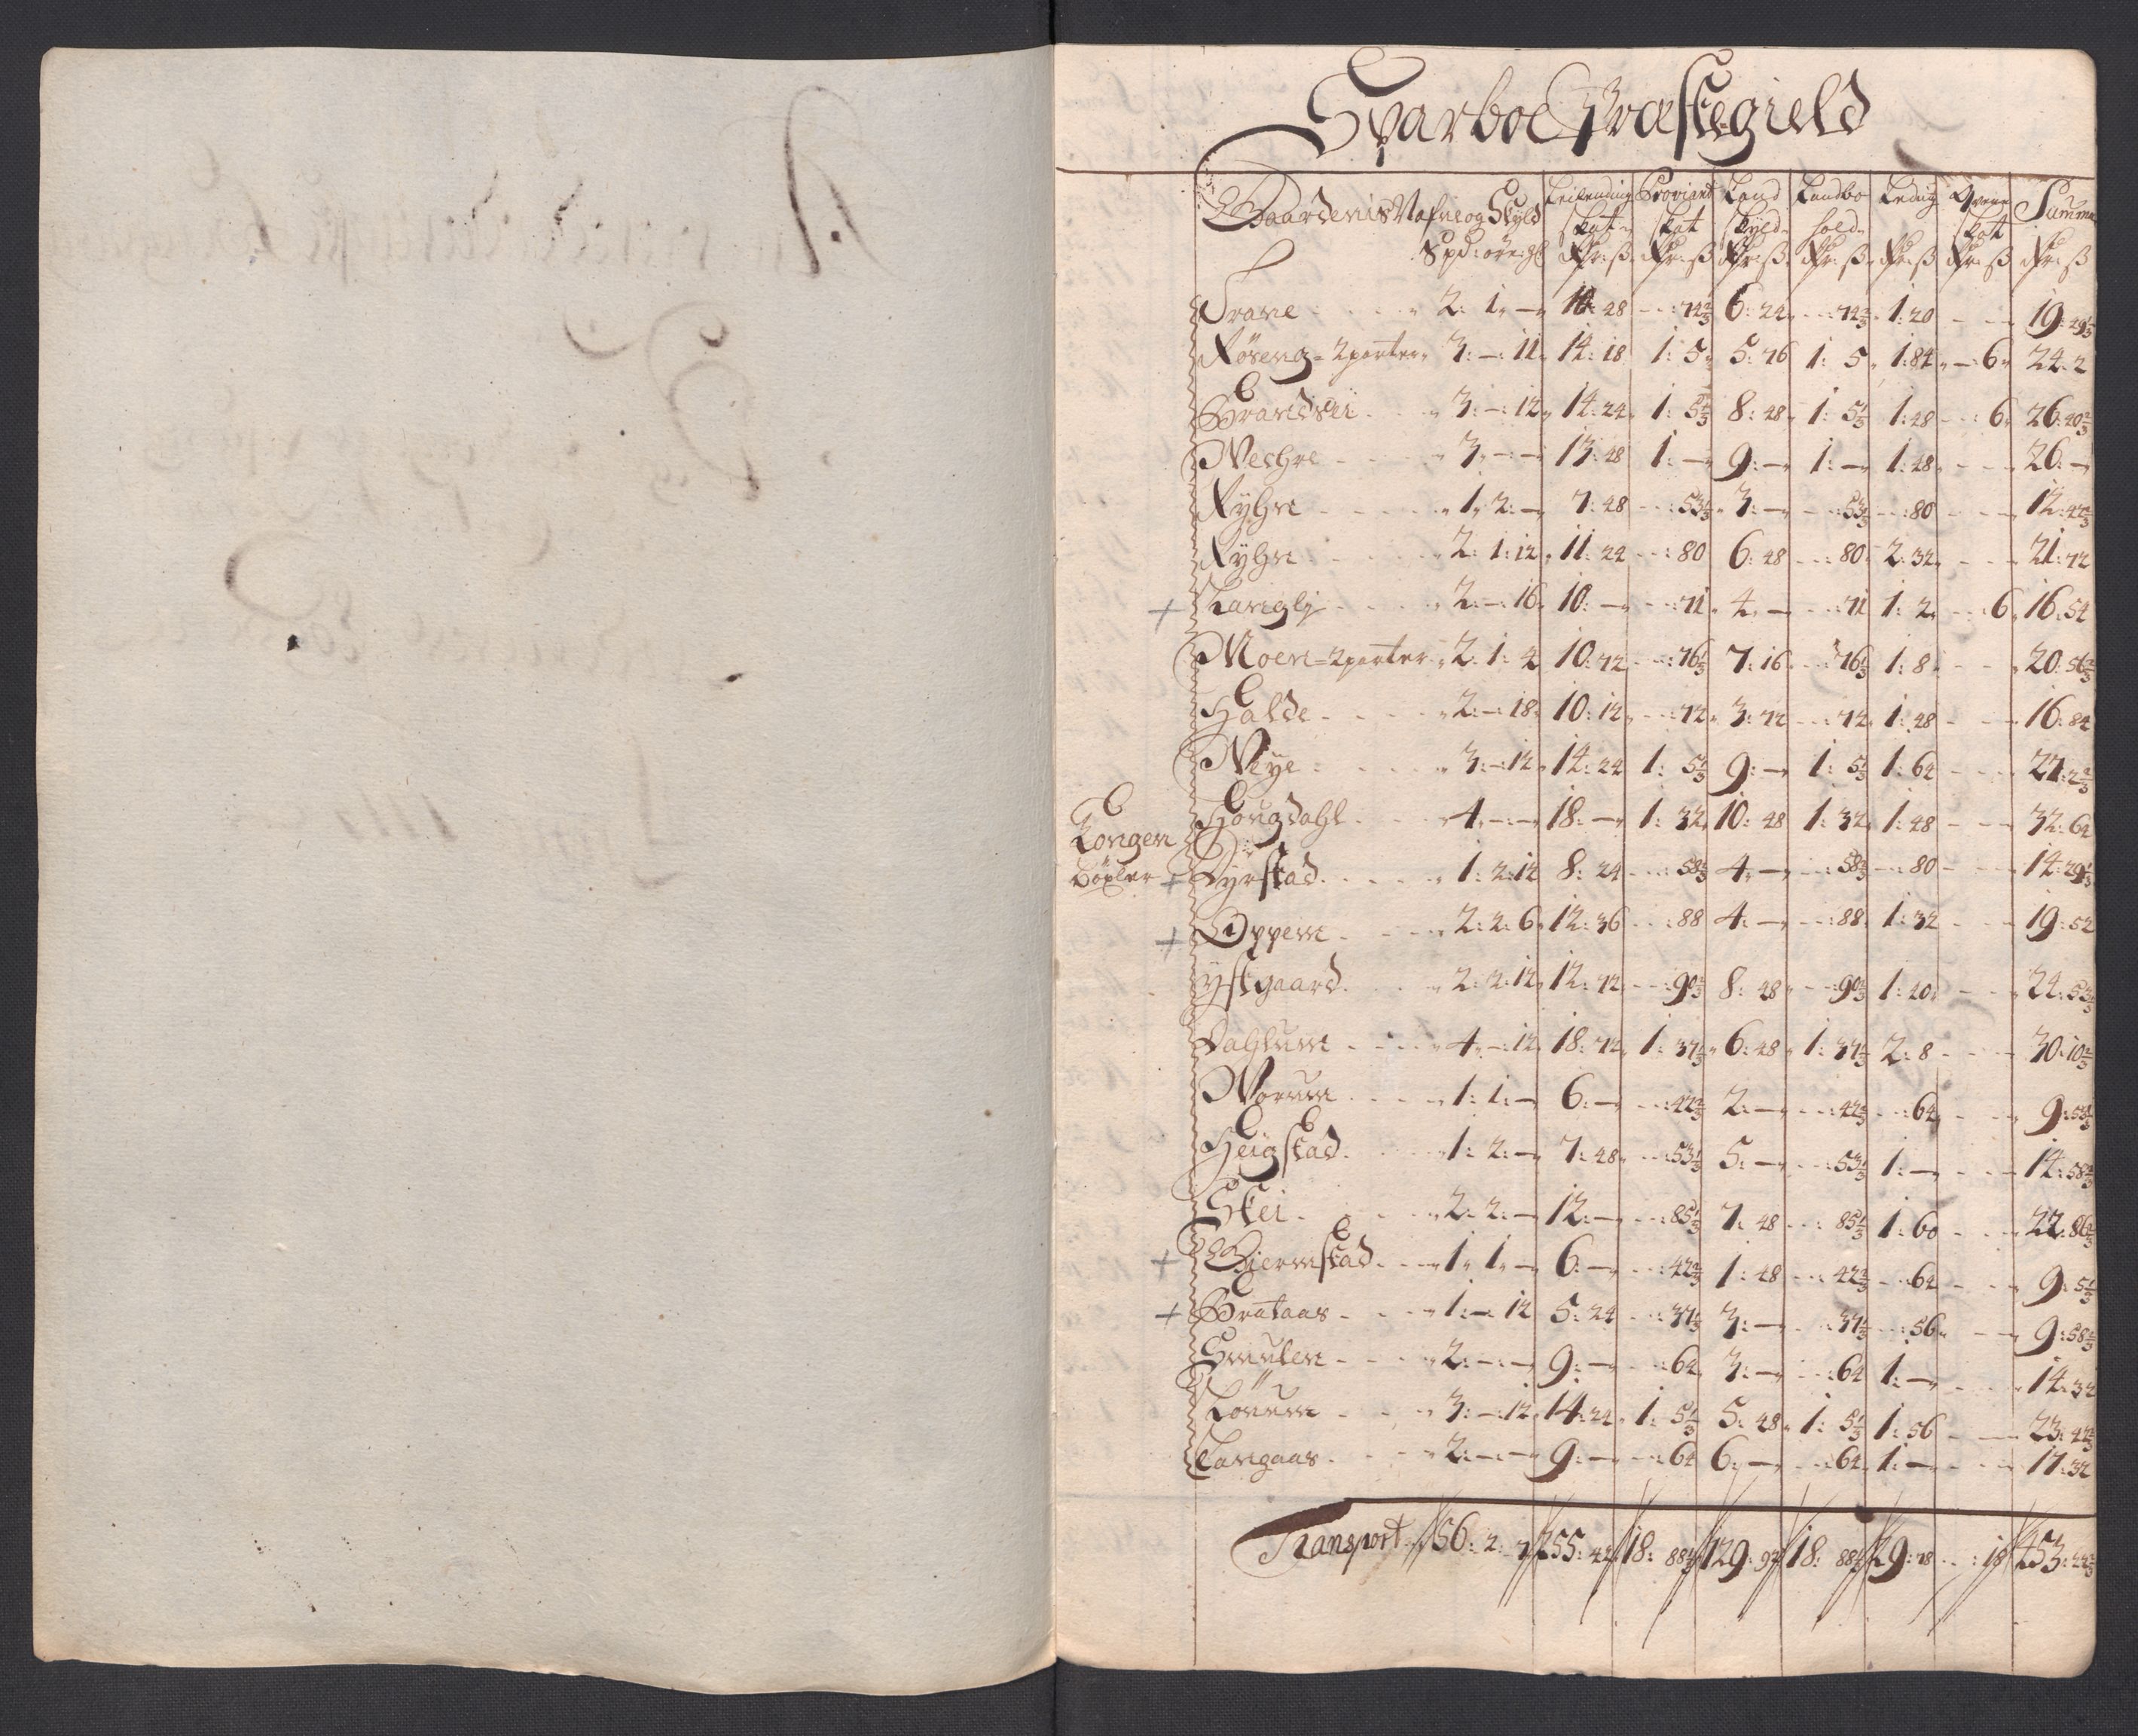 Sparboe Præstegield
Gaardenis Nafne og Skyld Leilending Proviant Land Landbo Leding Qvern Summa
Skat Skat Skyld hold Skat
Spd: öre: gl Rdr: ß Rdr: ß Rdr: ß Rdr: ß Rdr: ß Rdr: ß Rdr: ß
Trane 2: 1: — 10: 48 — : 74 2/3 6: 24 — : 74 2/3 1: 20 — 19: 49 1/3
Röseng = 2 parter 3: — : 11 14: 18 1: 5 5: 76 1: 5 1: 84 — : 6 24: 2
Brandsei 3: — : 12 14: 24 1: 5 1/3 8: 48 1: 5 1/3 1: 48 — : 6 26: 40 2/3
Wechre 3: — : — 13: 48 1: — 9: — 1: — 1: 48 — 26: —
Ryhre 1: 2: — 7: 48 — : 53 1/3 3: — — : 53 1/3 — : 80 — 12: 42 2/3
Ryhre 2: 1: 12 11: 24 — : 80 6: 48 — : 80 2: 32 — 21: 72
+ Langlj 2: — : 16 10: — — : 71 4: — — : 71 1: 2 — : 6 16: 54
Moen = 2 parter 2: 1: 2 10: 72 — : 76 1/3 7: 16 — : 76 1/3 1: 8 — 20: 56 2/3
Halde 2: — : 18 10: 12 — : 72 3: 72 — : 72 1: 48 — 16: 84
Weye 3: — : 12 14: 24 1: 5 1/3 9: — 1: 5 1/3 1: 64 — 27: 2 2/3
Hougdahl 4: — : — 18: — 1: 32 10: 48 1: 32 1: 48 — 32: 64
Kongen
Böxler + Dyrstad 1: 2: 12 8: 24 — : 58 2/3 4: — — : 58 2/3 — : 80 — 14: 29 1/3
+ Oppem 2: 2: 6 12: 36 — : 88 4: — — : 88 1: 32 — 19: 52
Ystgaard 2: 2: 12 12: 72 — : 90 2/3 8: 48 — : 90 2/3 1: 40 — 24: 53 1/3
Dahlum 4: — : 12 18: 72 1: 37 1/3 6: 48 1: 37 1/3 2: 8 — 30: 10 2/3
Worum 1: 1: — 6: — — : 42 2/3 2: — — : 42 2/3 — : 64 — 9: 53 1/3
Heigstad 1: 2: — 7: 48 — : 53 1/3 5: — — : 53 1/3 1: — — 14: 58 2/3
Skei 2: 2: — 12: — — : 85 1/3 7: 48 — : 85 1/3 1: 60 — 22: 86 2/3
+ Giermstad 1: 1: — 6: — — : 42 2/3 1: 48 — : 42 2/3 — : 64 — 9: 5 1/3
+ Brataas 1: — : 12 5: 24 — : 37 1/3 3: — — : 37 1/3 — : 56 — 9: 58 2/3
Smulen 2: — : — 9: — — : 64 3: — — : 64 1: — — 14: 32
Löuum 3: — : 12 14: 24 1: 5 1/3 5: 48 1: 5 1/3 1: 56 — 23: 42 2/3
Langaas 2: — : — 9: — — : 64 6: — — : 64 1: — — 17: 32
Transport 56: 2: 7 255: 42 18: 88 129: 92 18: 88 29: 78 — : 18 453: 22 2/3